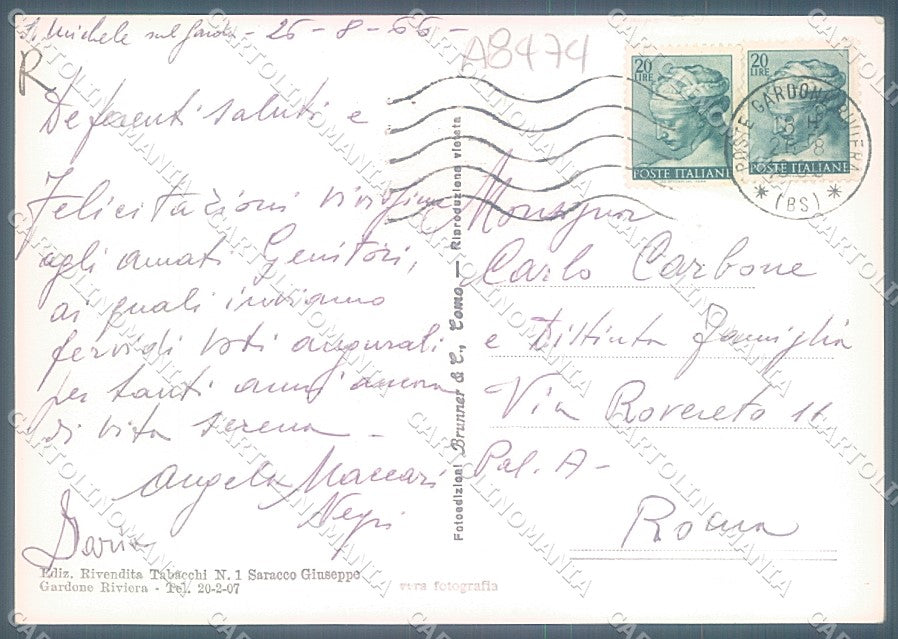 S. Michele sul Garda - 26 - 8 - 66 -
A8474
R
Deferenti saluti e
Felicitazioni vivissime
agli amati Genitori,
ai quali inviamo
fervidi voti augurali
per tanti anni ancora
di vita serena -
Angela Maccari
Negri
Daria
Ediz. Rivendita Tabacchi N. 1 Saracco Giuseppe
Gardone Riviera - Tel. 20-2-07
vera fotografia
Fotoedizioni Brunner & C., Como — Riproduzione vietata
20
LIRE
POSTE ITALIANE
20
LIRE
POSTE ITALIANE
POSTE GARDONE RIVIERA
(BS)
Monsignor
Carlo Carbone
e Distinta Famiglia
Via Rovereto 11
Pal. A -
Roma
CARTOLINOMANIA